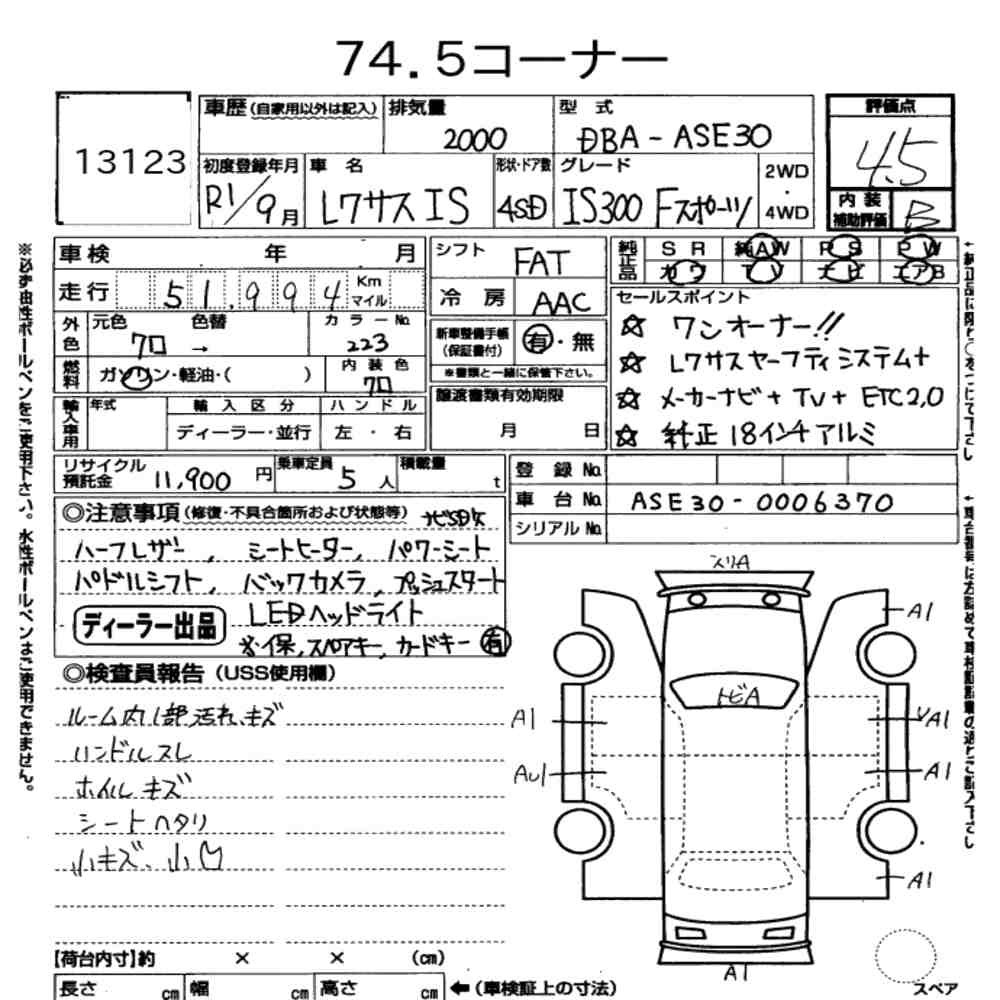 74.5コーナー
13123
車歴(自家用以外は記入) 排気量 2000 型式 DBA-ASE30 評価点 4.5
初度登録年月 R1/9月 車名 レクサス IS 形状・ドア数 4SD グレード IS300 Fスポーツ 2WD・4WD 内装補助評価 B
車検 年 月 シフト FAT 純正品 SR 純AW PS PW
走行 51,994 Km マイル 冷房 AAC カワ TV ナビ エアB
外色 元色 クロ → 色替 カラーNo. 223 新車整備手帳(保証書付) 有・無
※書類と一緒に保管下さい。
燃料 ガソリン・軽油・( ) 内装色 クロ
輸入車用 年式 輸入区分 ディーラー・並行 ハンドル 左・右 譲渡書類有効期限 月 日
セールスポイント
☆ ワンオーナー!!
☆ レクサスセーフティシステム+
☆ メーカーナビ+TV+ETC2,0
☆ 純正18インチアルミ
リサイクル預託金 11,900円 乗車定員 5人 積載量 t
登録No.
車台No. ASE30-0006370
シリアルNo.
◎注意事項(修復・不具合箇所および状態等) ナビSD欠
ハーフレザー, シートヒーター, パワーシート
パドルシフト, バックカメラ, プッシュスタート
ディーラー出品 LEDヘッドライト
※保,スペアキー,カードキー 有
◎検査員報告(USS使用欄)
ルーム内1部汚れ、キズ
ハンドルスレ
ホイルキズ
シートヘタリ
小キズ、小凹
スリA
A1
トビA
A1
A1
AU1
A1
A1
A1
スペア
【荷台内寸】約 × × (cm)
長さ cm 幅 cm 高さ cm ←(車検証上の寸法)
※必ず油性ボールペンをご使用下さい。水性ボールペンはご使用できません。
←純正品に限り○をつけて下さい